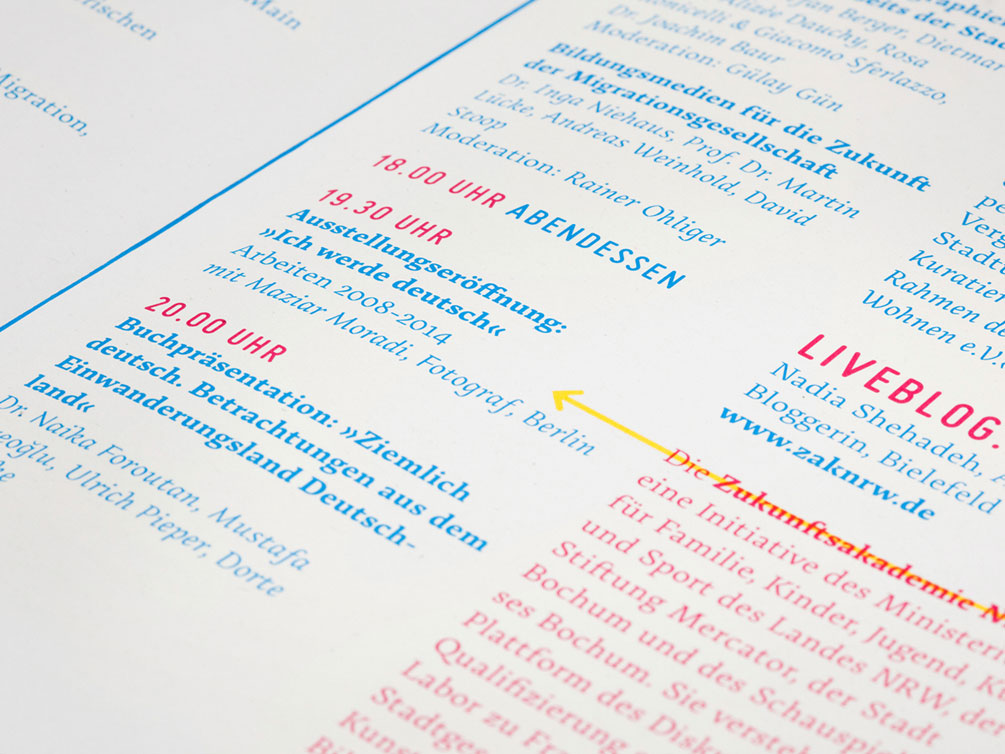 Main
rischen
Migration,
Dr. Joachim Baur
Moderation: Gülay Gün
Bildungsmedien für die Zukunft
der Migrationsgesellschaft
Dr. Inga Niehaus, Prof. Dr. Martin
Lücke, Andreas Weinhold, David
Stoop
Moderation: Rainer Ohliger
18.00 UHR ABENDESSEN
19.30 UHR
Ausstellungseröffnung:
»Ich werde deutsch«
Arbeiten 2008-2014
mit Maziar Moradi, Fotograf, Berlin
20.00 UHR
Buchpräsentation: »Ziemlich
deutsch. Betrachtungen aus dem
Einwanderungsland Deutsch-
land«
Dr. Naika Foroutan, Mustafa
Ulrich Pieper, Dorte
Rahmen
Wohnen e.V.
LIVEBLOG.
Nadia Shehadeh,
Bloggerin, Bielefeld
www.zaknrw.de
Die Zukunftsakademie N
eine Initiative des
für Familie, Kinder, Jugend,
und Sport des Landes NRW,
Stiftung Mercator, der Stadt
Bochum und des
ses Bochum. Sie
Plattform des
Qualifizierung
Labor zu